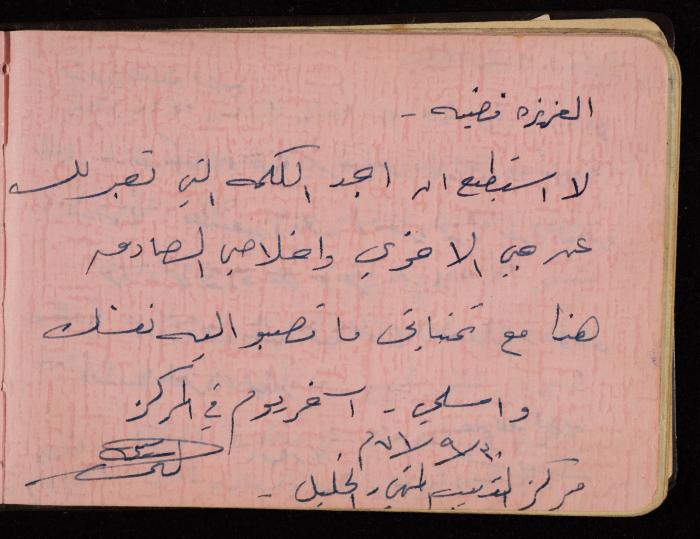 العزيزه فضيه -
لا استطيع ان اجد الكلمه التي تعبر لك
عن حبي الاخوي واخلاصي الصادق
هذا مع تمنياتي ما تصبو اليه نفسك
واسلمي - آخر يوم في المركز
مركز التدريب المهني - الخليل -